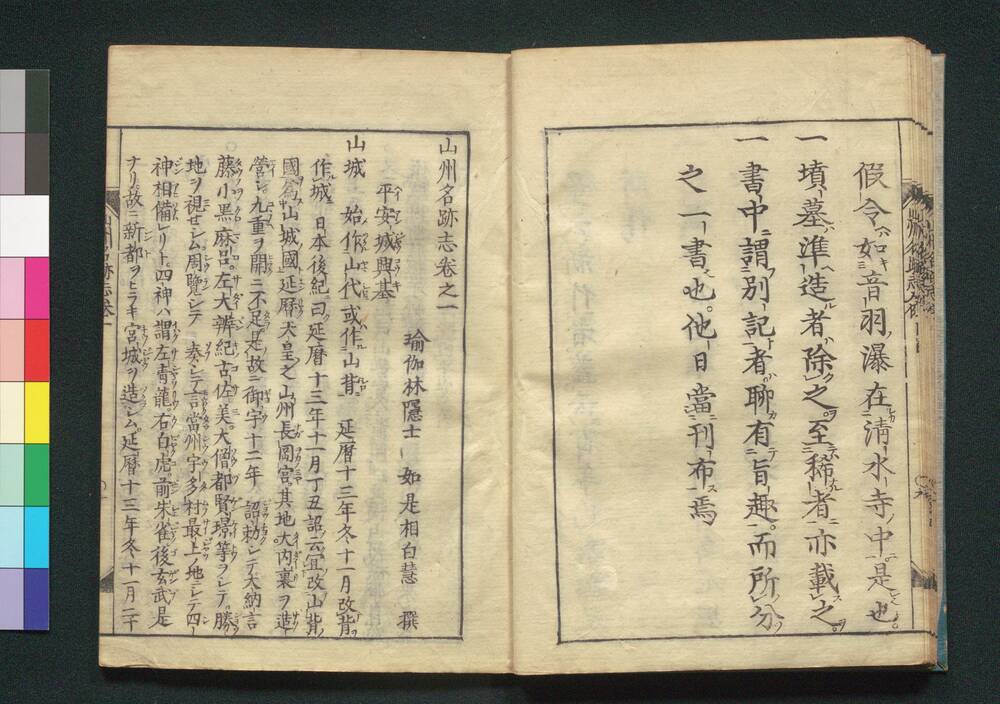 假令ハ如キ音羽ノ瀑在ルカ清水寺ノ中ニ是也
一 墳墓準ル造ニ者ハ除ク之ヲ至テハ稀ナルニ者亦載ス之ヲ
一 書中ニ謂フ別ニ記スト者ハ聊カ有テ旨趣而所分ツ
之一書也他日當ニ刊布ス焉
山州名跡志卷之一
瑜伽林隱士 如是相白慧 撰
平安城興基
山城 始作山代或作山背 延曆十三年冬十一月改背ヲ
作城ニ 日本後紀曰延曆十三年十一月丁丑詔云宜改山背ノ
國ヲ為山城國ト延曆天皇之山州長岡宮其地大内裏ヲ造
營シ九重ヲ開ニ不足是故ニ御宇十二年ニ詔勅シテ大納言
藤小黒麻呂左大辨紀古佐美大僧都賢璟等ヲシテ勝
地ヲ視セシム周覽シテ 奏シテ言當州宇多村最上ノ地ニシテ四
神相備レリト四神ハ謂左青龍右白虎前朱雀後玄武是
ナリ故ニ新都ヲヒラキ宮城ヲ造シム延曆十三年冬十一月二十